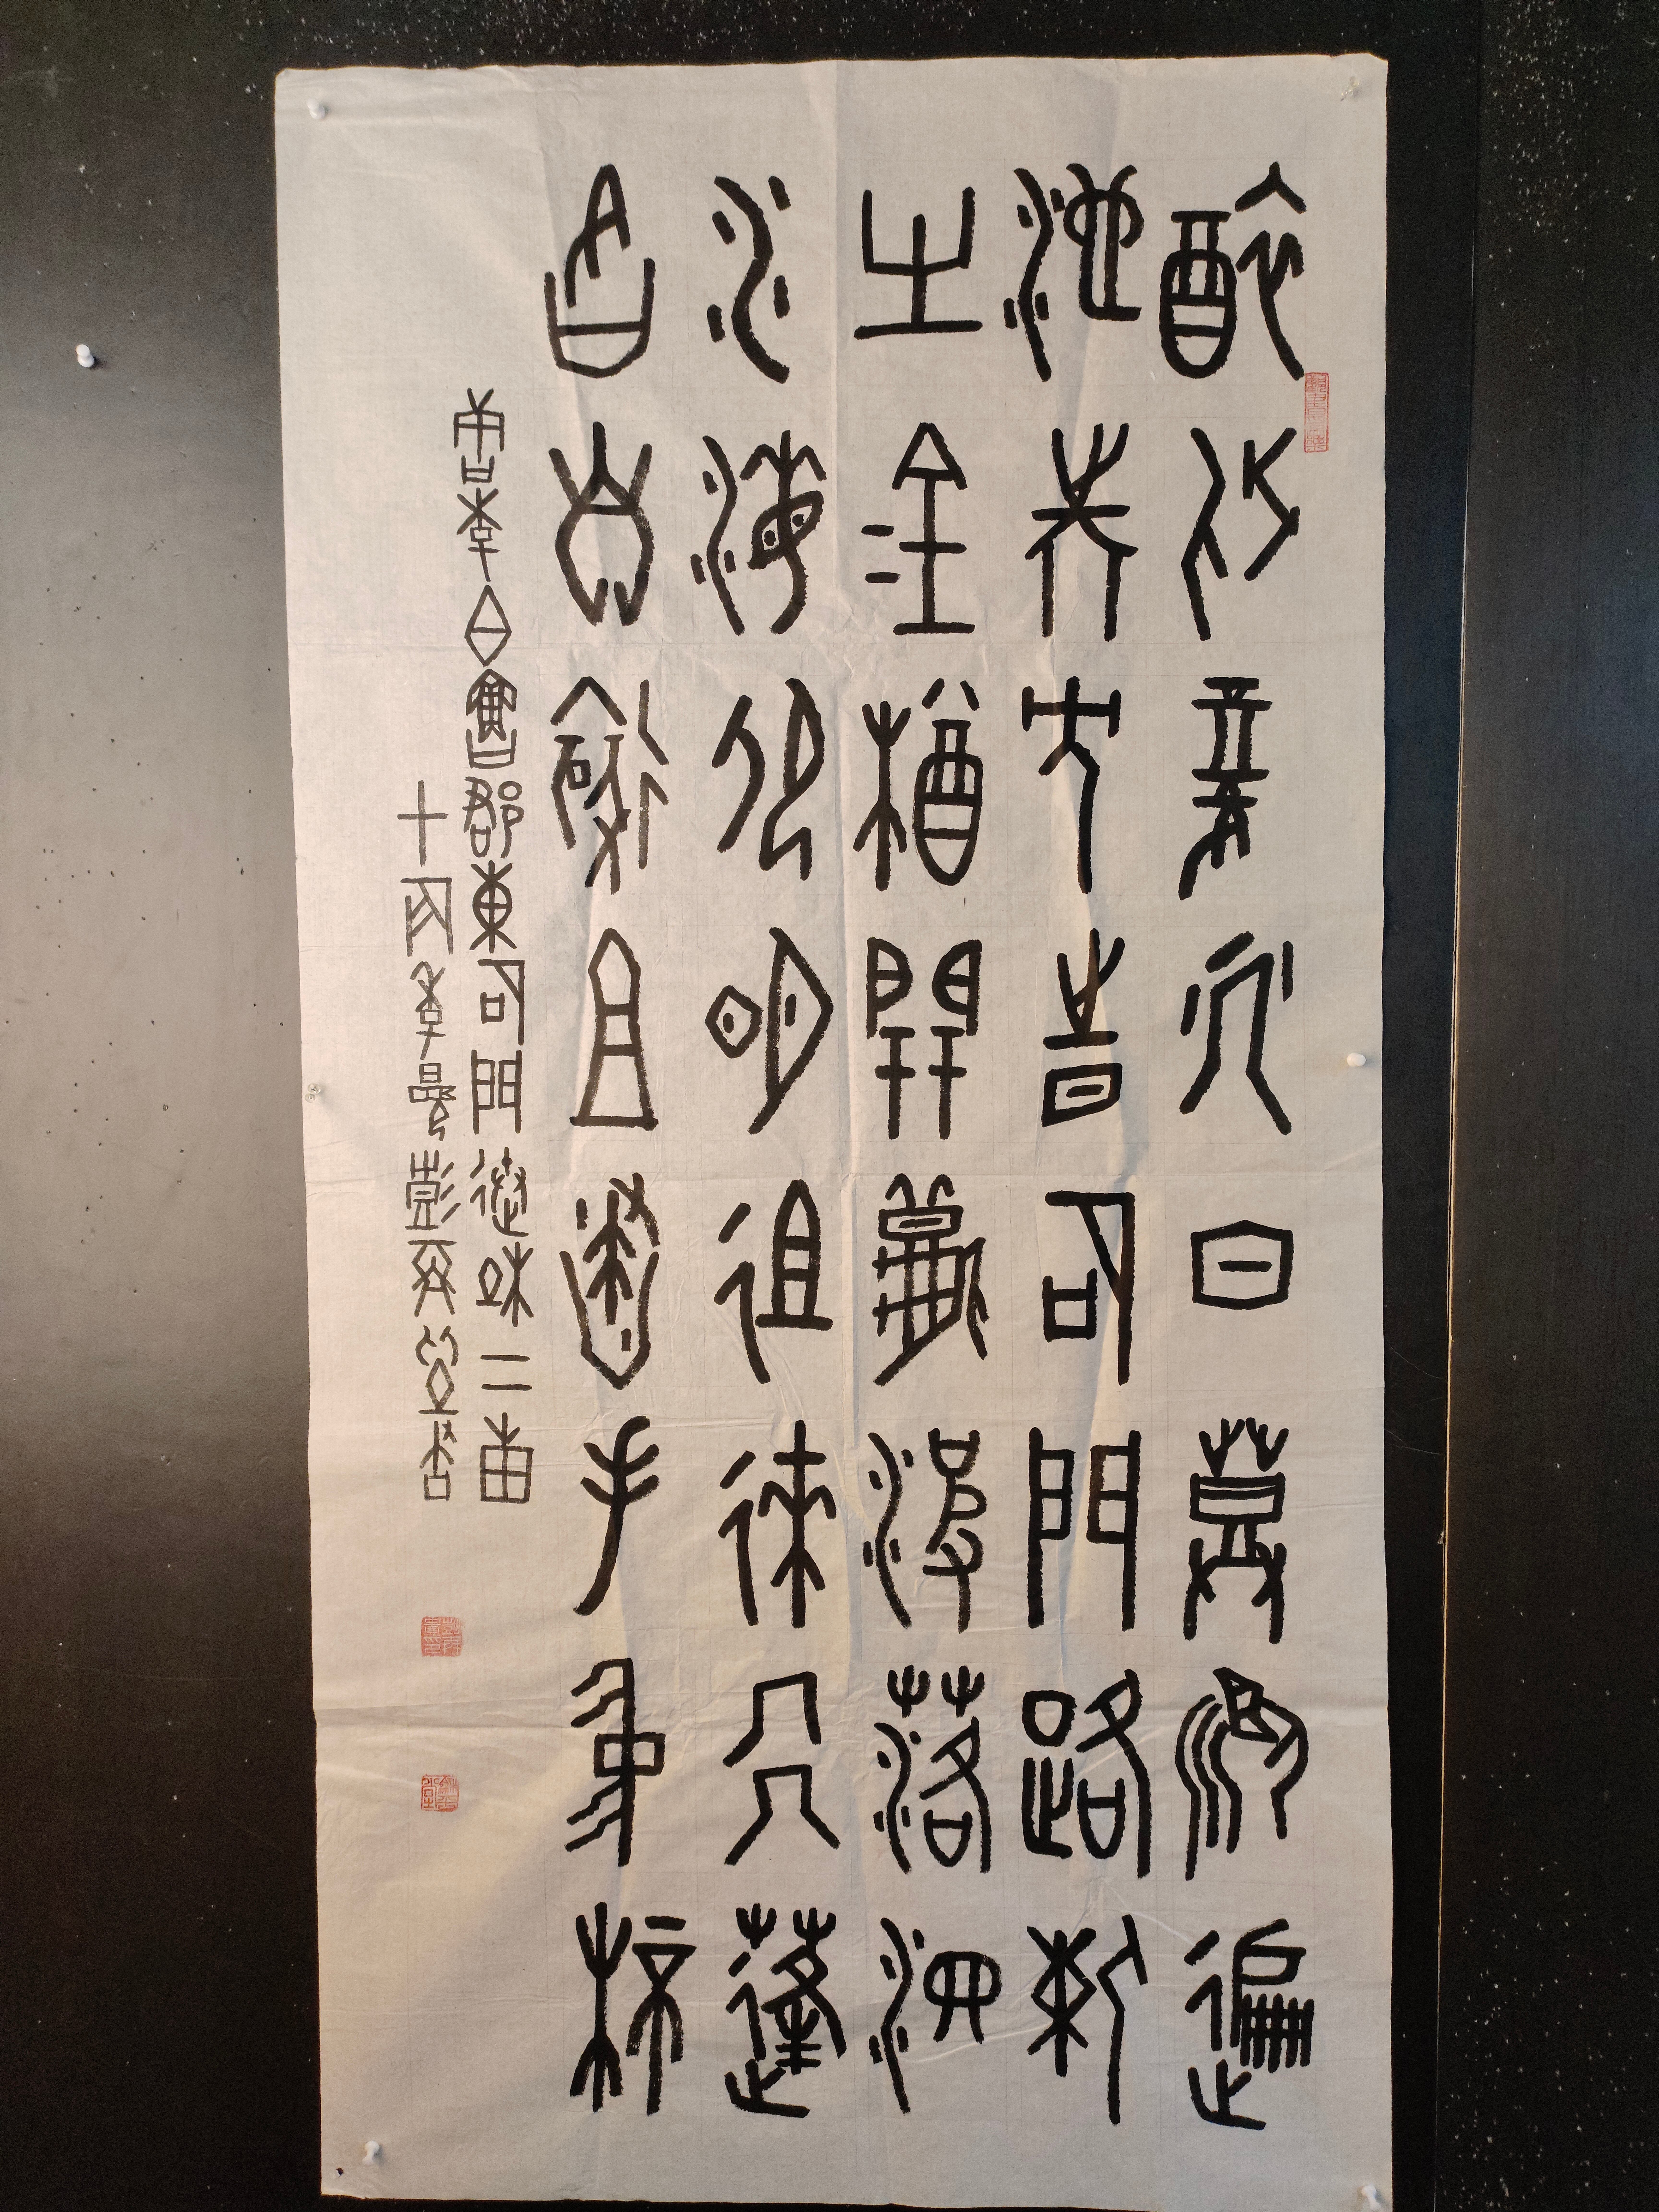 醉別復幾日登臨遍
池臺何時石門路重
有金樽開秋波落泗
水海色明徂徠飛蓬
各自遠且盡手中杯
唐李白魯郡東石門送杜二甫
十月 彭